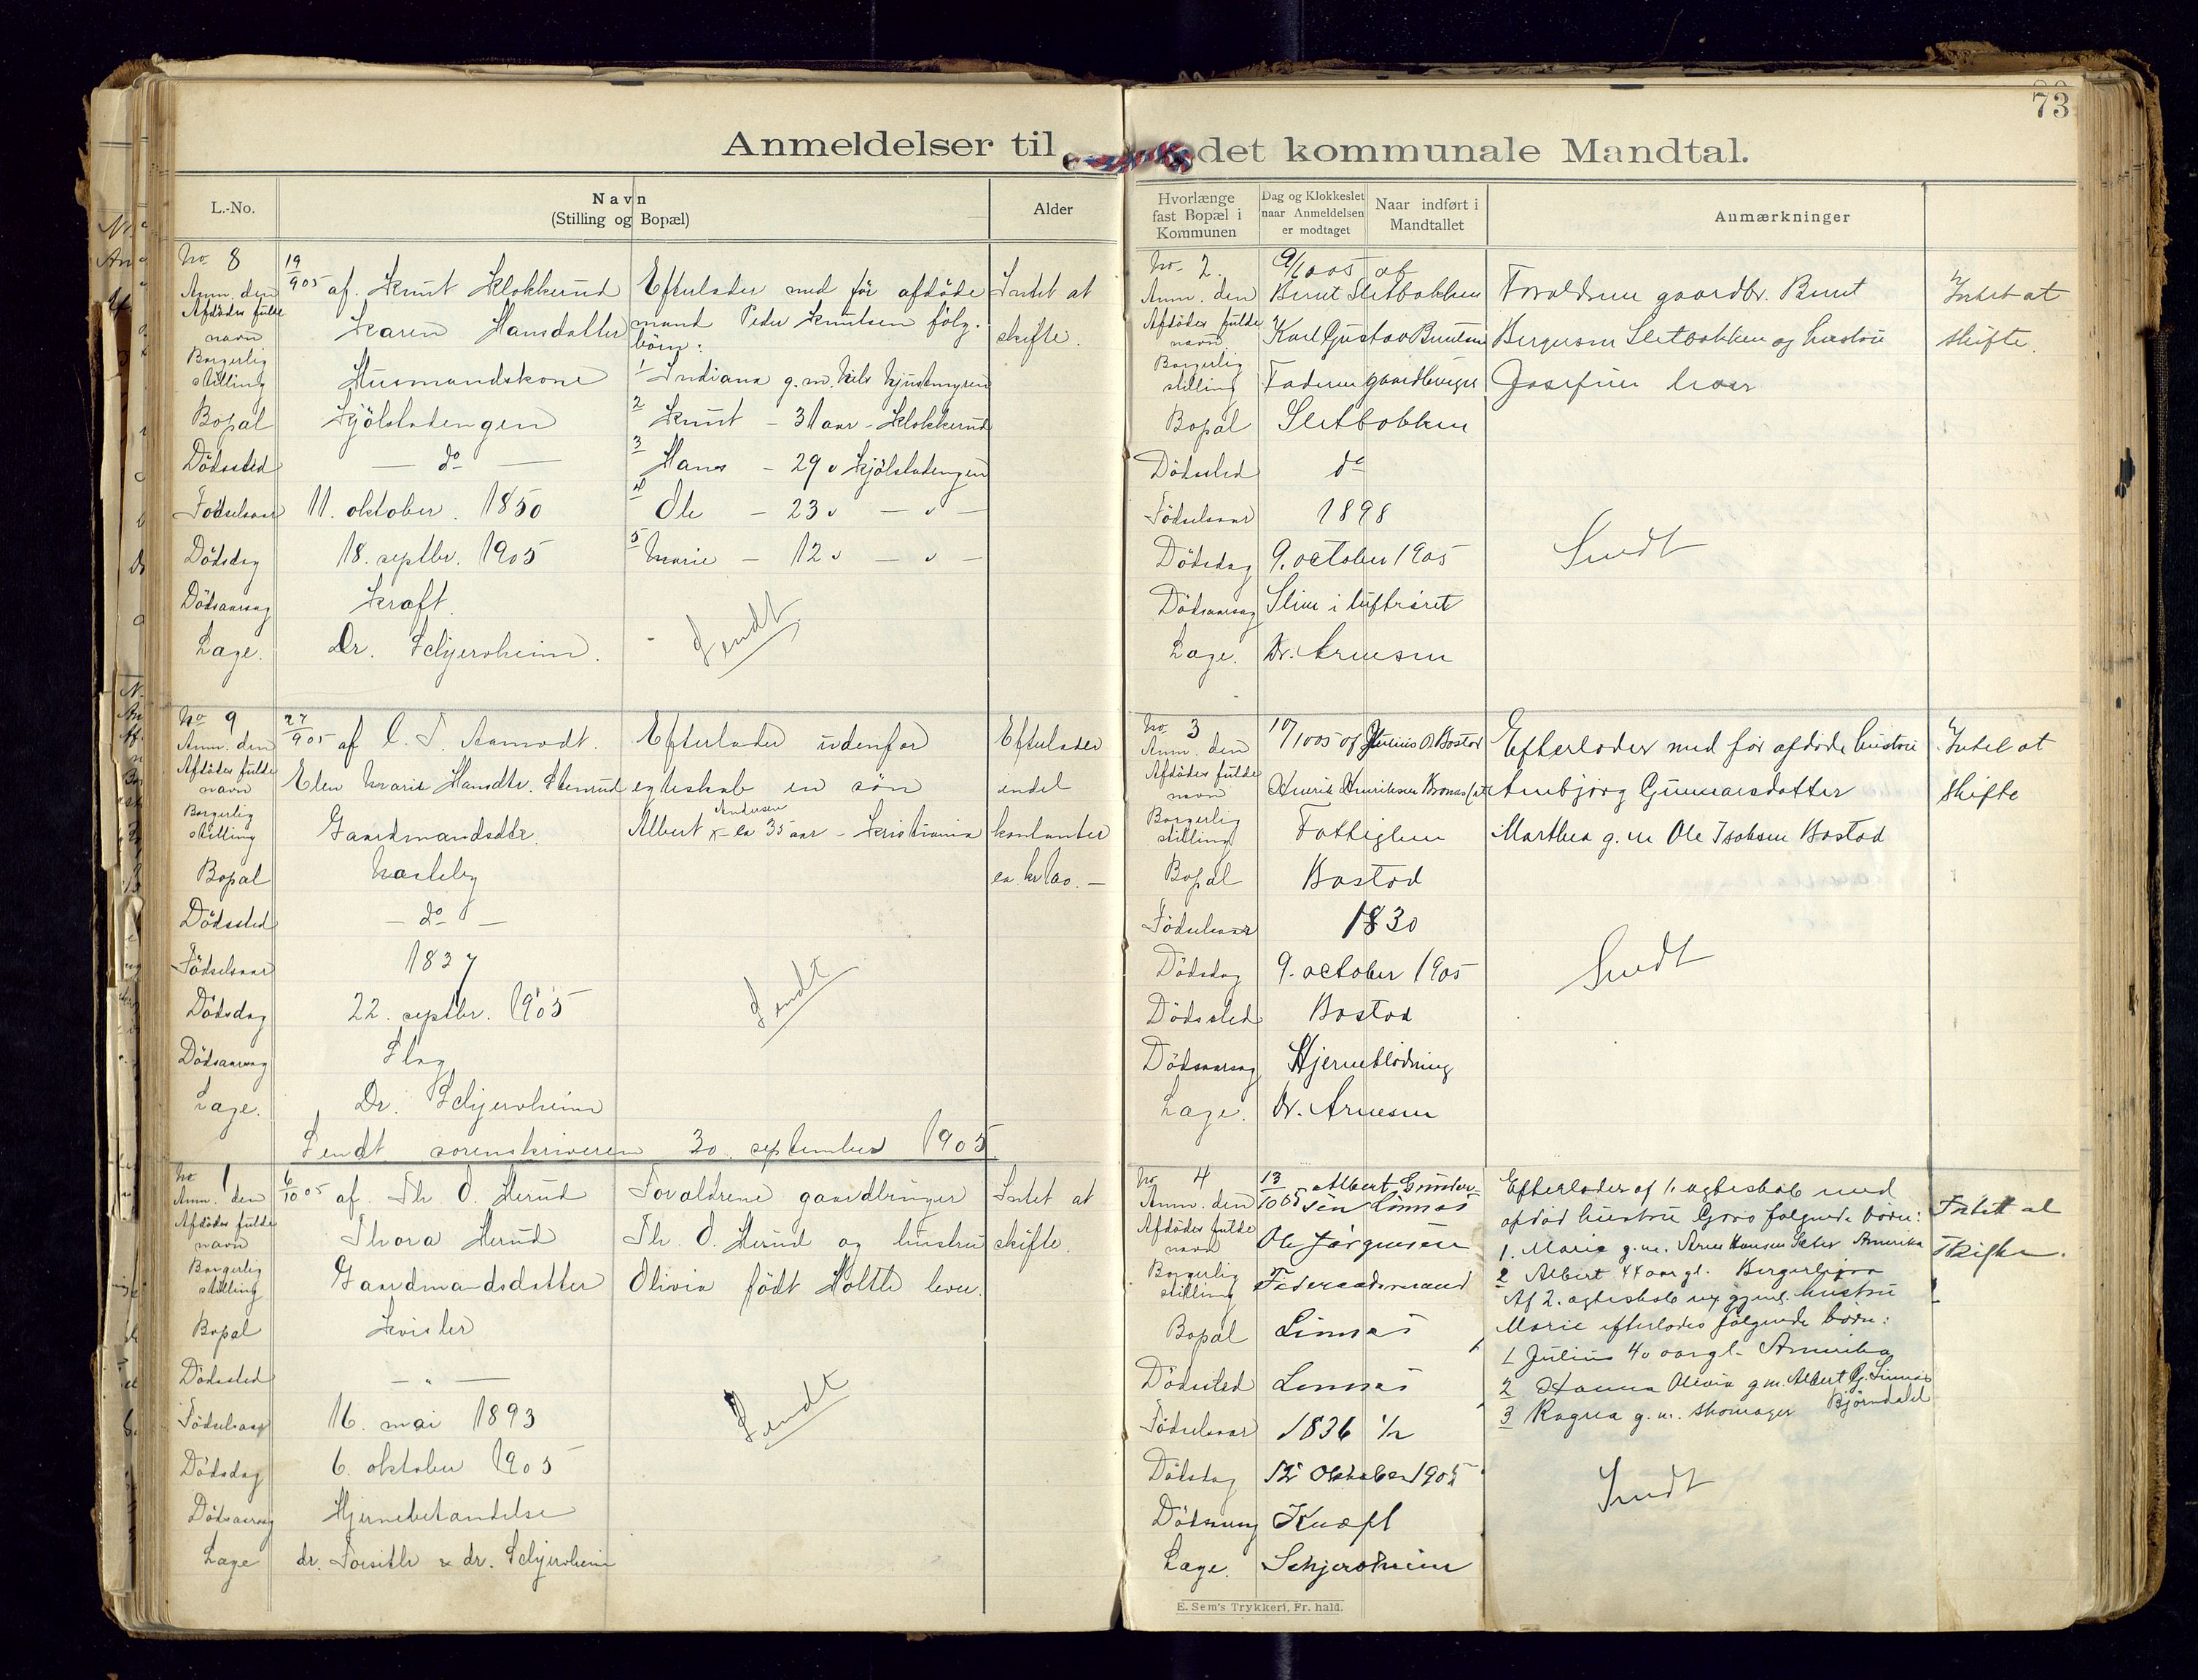 73
Anmeldelser til det kommunale Mandtal.
L.-No.
Navn
(Stilling og Bopæl)
Alder
No 8
Anm. den 19/9 05 af. Knut Klokkerud
Afdödes fulde navn Karen Hansdatter
Borgerlig stilling Husmandskone
Bopæl Kjölstadengen
Dödssted — do —
Födselsaar 11. oktober. 1850
Dödsdag 18. septbr. 1905
Dödsaarsag Kræft.
Læge. Dr. Schjeroheim.
Efterlader med för afdöde
mand Peder Knutsen fölg.
börn:
1 Indiana g. m. Nils
2 Knut — 31 aar — Klokkerud
3 Hans — 29 " Kjölstadengen
4 Ole — 23 " — " —
5 Marie — 12 " — " —
Sendt.
Intet at
skifte.
No 9
Anm. den 27/9 05 af C. T. Aamodt.
Afdödes fulde navn Elen Marie Hansdtr. Stenrud
Borgerlig stilling Gaardmandsdtr.
Bopæl Narteby
Dödssted — do —
Födselsaar 1837
Dödsdag 22. septbr. 1905
Dödsaarsag Slag
Læge. Dr. Schjeroheim
Efterlader udenfor
egteskab en sön
Andersen
Albert x — ca 35 aar — Kristiania
Sendt
Efterlader
endel
kontanter
ca. kr 100. —
Sendt sorenskriveren 30. september 1905.
No 1
Anm. den 6/10 05 af. Th O. Herud
Afdödes fulde navn Thora Herud
Borgerlig stilling Gaardmandsdatter
Bopæl Kvisler
Dödssted — " —
Födselsaar 16. mai 1893
Dödsdag 6. oktober 1905
Dödsaarsag Hjernebetændelse
Læge dr. & dr. Schjeroheim
Forældrene gaardbruger
Th. O. Herud og hustru
Olivia födt Holth lever.
Sendt
Intet at
skifte.
Hvorlænge
fast Bopæl i
Kommunen
Dag og Klokkeslet
naar Anmeldelsen
er modtaget
Naar indført i
Mandtallet
Anmærkninger
No. 2.
9/10 05 af
Anm. den Bernt Sletbakken
Afdödes fulde navn Karl Gustav Berntsen
Borgerlig stilling Faderen gaardbruger
Bopæl Sletbakken
Dödssted do
Födselsaar 1898
Dödsdag 9. october 1905
Dödsaarsag Slim i luftröret
Læge. Dr. Arnesen
Forældrene gaardbr. Bernt
Bergersen Sletbakken og hustru
Josefine lever
Sendt
Intet at
skifte.
No 3
Anm. den 10/10 05 af Julius O. Bastad
Afdödes fulde navn Henrik Henriksen
Borgerlig stilling Fattiglem
Bopæl Bastad
Födselsaar 1830
Dödsdag 9. october 1905
Dödssted Bastad
Dödsaarsag Hjerneblödning
Læge. Dr. Arnesen
Efterlader med för afdöde hustru
Anbjörg Gunnarsdatter
Marthea g. m Ole Isaksen Bastad
Sendt
Intet at
skifte
No 4
Anm. den 13/10 05 Albert Gunder-
sen Linnæs
Afdödes fulde navn Ole Jörgensen
Borgerlig stilling Föderaadsmand
Bopæl Linnæs
Dödssted Linnæs
Födselsaar 1836 1/2
Dödsdag 12 Oktober 1905
Dödsaarsag Kræft
Læge. Schjeroheim
Efterlader af 1. ægteskab med
afdöd hustru Goro fölgende börn:
1. Marie g. m. Arne Hansen Amerika
2 Albert 44 aar gl.
Af 2. ægteskab med hustru
Marie efterlades fölgende börn:
1 Julius 40 aar gl. Amerika
2 Hanna Olivia g. m. Albert G. Linnæs
3 Ragna g. m. skomager Björndalel
Sendt
Intet at
skifte.
E. Sem's Trykkeri, Fr. hald.